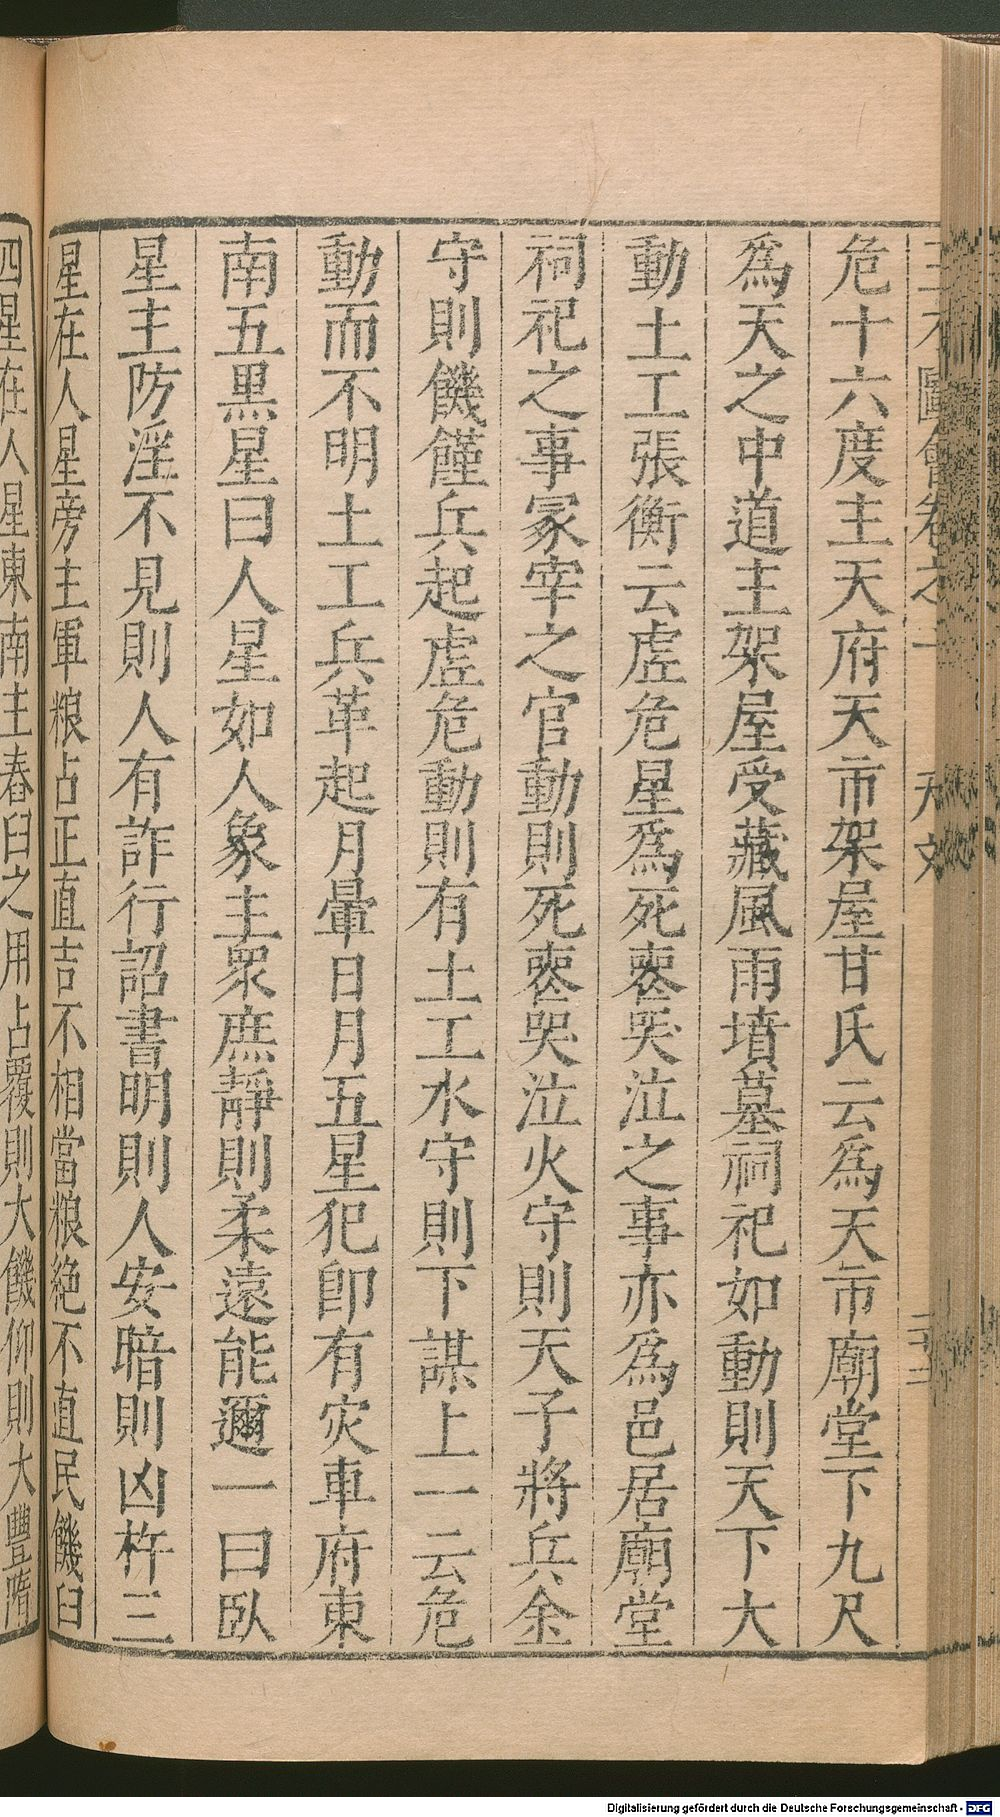 三才圖會卷之一 天文
危十六度主天府天市架屋甘氏云為天市廟堂下九尺
為天之中道主架屋受藏風雨墳墓祠祀如動則天下大
動土工張衡云虛危星為死喪哭泣之事亦為邑居廟堂
祠祀之事冢宰之官動則死喪哭泣火守則天子將兵金
守則饑饉兵起虛危動則有土工水守則下謀上一云危
動而不明土工兵革起月暈日月五星犯即有灾車府東
南五黑星曰人星如人象主衆庶靜則柔遠能邇一曰臥
星主防淫不見則人有詐行詔書明則人安暗則凶杵三
星在人星旁主軍粮占正直吉不相當粮絕不直民饑臼
四星在人星東南主舂臼之用占覆則大饑仰則大豐隋
Digitalisierung gefördert durch die Deutsche Forschungsgemeinschaft - DFG